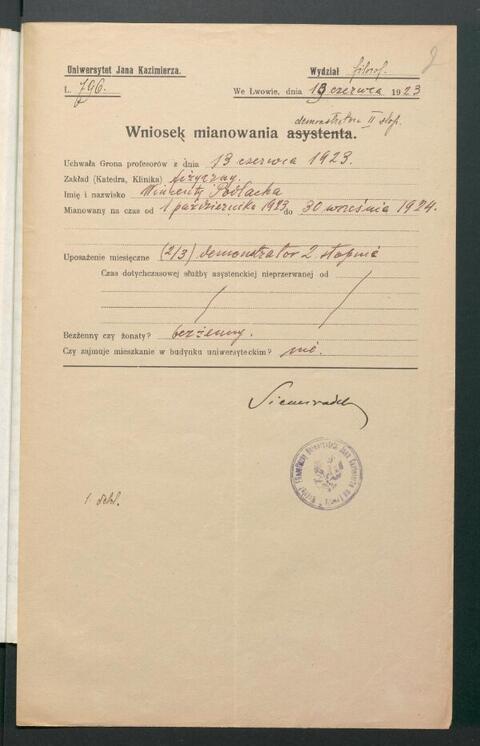 2
Uniwersytet Jana Kazimierza.
Wydział filozof.
L. 796.
We Lwowie, dnia 13 czerwca 1923
demonstratora II stop.
Wniosek mianowania asystenta.
Uchwała Grona profesorów z dnia 13 czerwca 1923.
Zakład (Katedra, Klinika) fizyczny.
Imię i nazwisko Wincenty Podlacha
Mianowany na czas od 1 października 1923 do 30 września 1924.
Uposażenie miesięczne (2/3) demonstrator 2 stopnia
Czas dotychczasowej służby asystenckiej nieprzerwanej od
Bezżenny czy żonaty? bezżenny.
Czy zajmuje mieszkanie w budynku uniwersyteckim? nie.